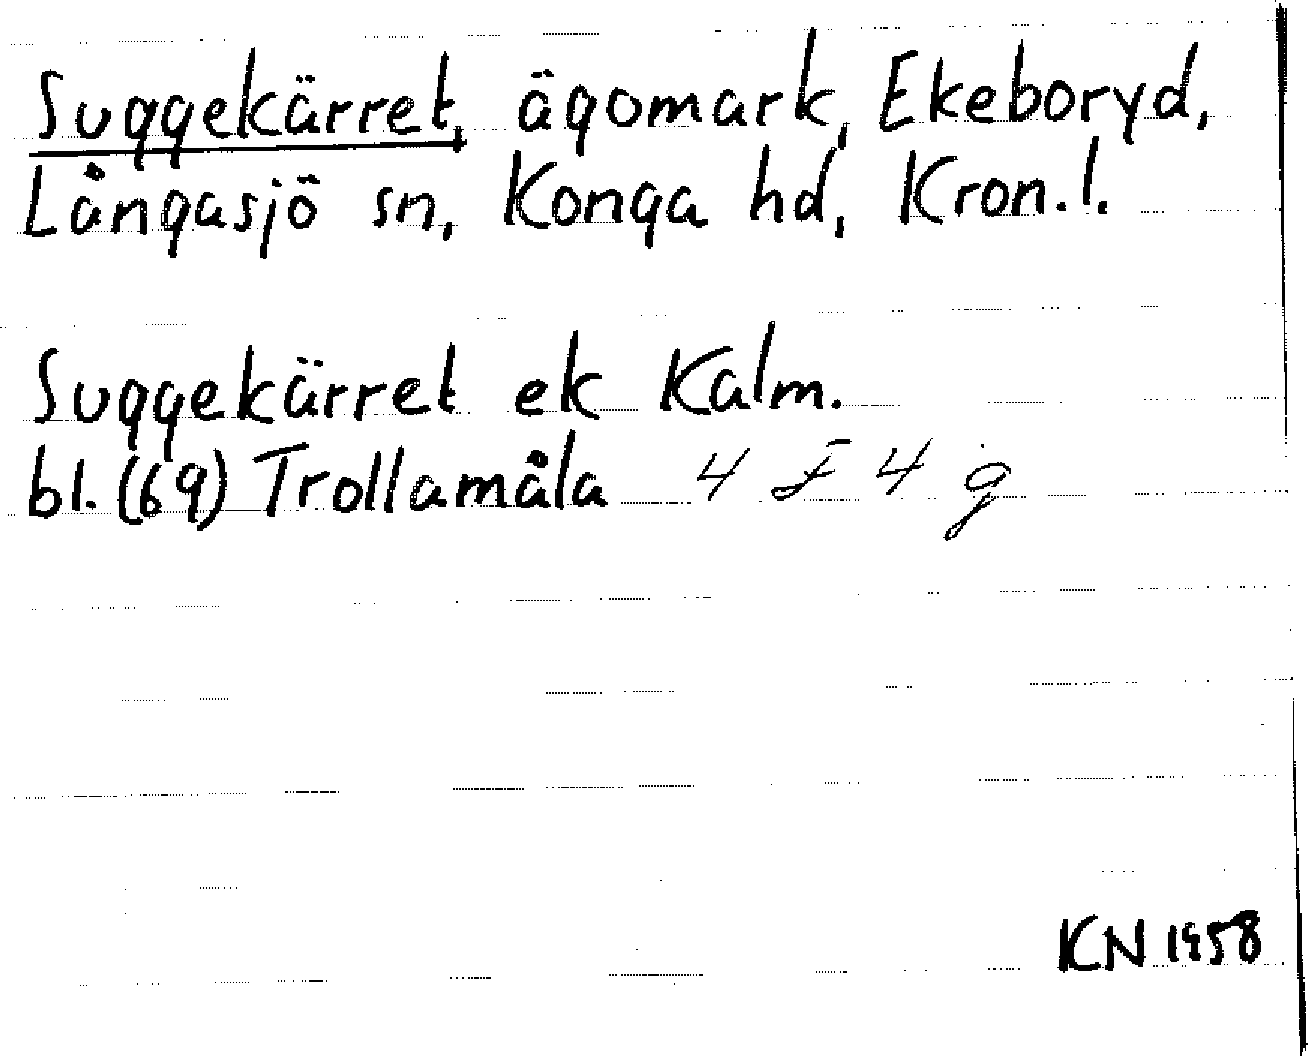 Suggekärret, ägomark, Ekeboryd,
Långasjö sn, Konga hd, Kron.l.
Suggekärret ek Kalm.
bl. (69) Trollamåla 4 F 4 g
KN 1958